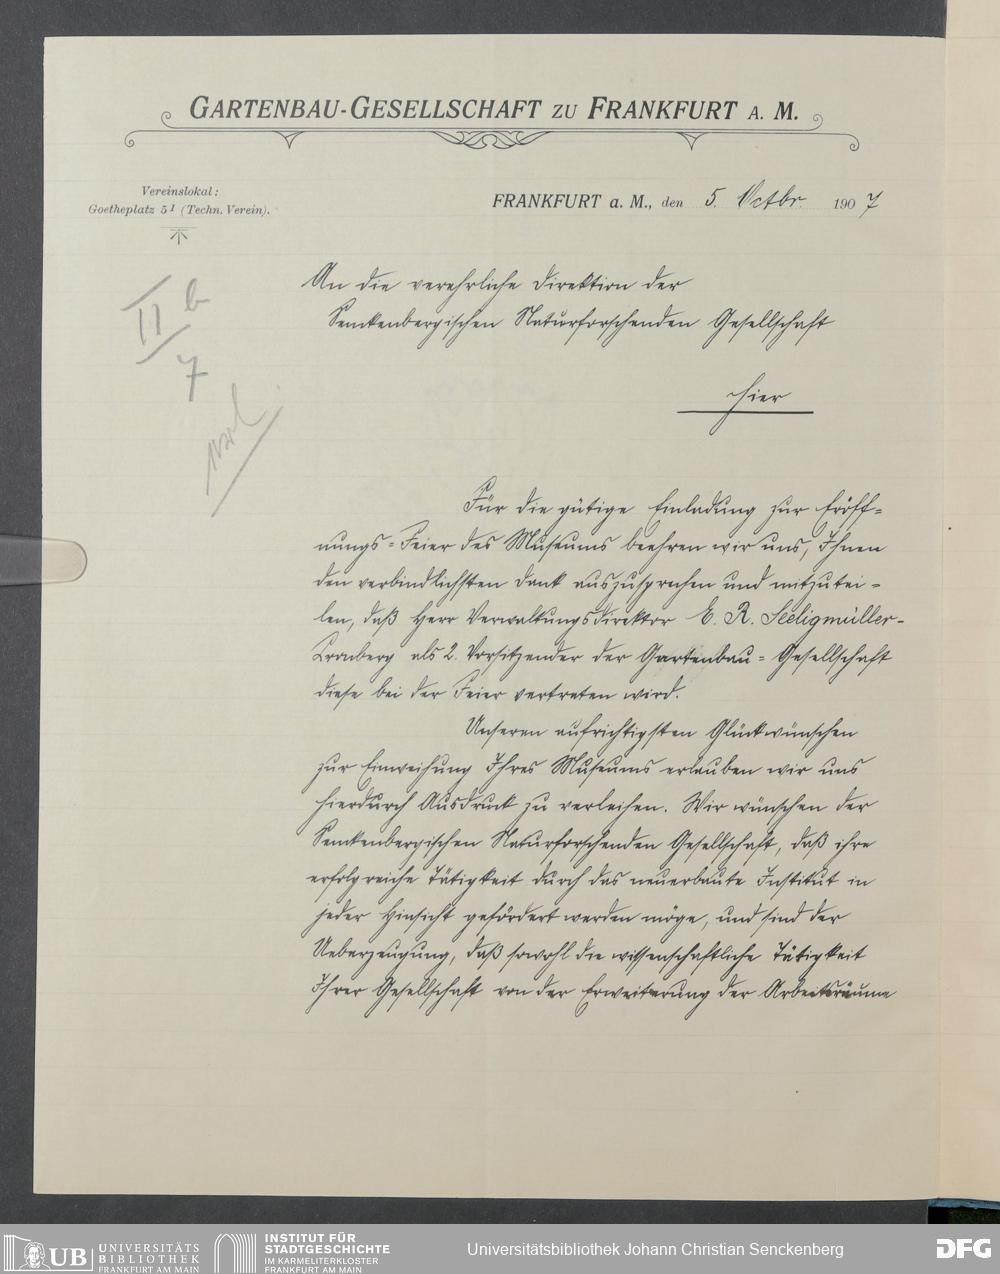 GARTENBAU-GESELLSCHAFT ZU FRANKFURT A. M.
Vereinslokal:
Goetheplatz 5 I (Techn. Verein).
FRANKFURT a. M., den 5. Octbr. 1907
II b
7
An die verehrliche Direktion der
Senckenbergischen Naturforschenden Gesellschaft
Hier
Für die gütige Einladung zur Eröff=
nungs=Feier des Museums beehren wir uns, Ihnen
den verbindlichsten Dank auszusprechen und mitzutei=
len, daß Herr Verwaltungsdirektor E. R. Seeligmüller-
Cronberg als 2. Vorsitzender der Gartenbau=Gesellschaft
diese bei der Feier vertreten wird.
Unseren aufrichtigsten Glückwünschen
zur Einweihung Ihres Museums erlauben wir uns
hierdurch Ausdruck zu verleihen. Wir wünschen der
Senckenbergischen Naturforschenden Gesellschaft, daß ihre
erfolgreiche Tätigkeit durch das neuerbaute Institut in
jeder Hinsicht gefördert werden möge, und sind der
Ueberzeugung, daß sowohl die wissenschaftliche Tätigkeit
Ihrer Gesellschaft von der Erweiterung der Arbeitsräume
UB UNIVERSITÄTS
BIBLIOTHEK
FRANKFURT AM MAIN
INSTITUT FÜR
STADTGESCHICHTE
IM KARMELITERKLOSTER
FRANKFURT AM MAIN
Universitätsbibliothek Johann Christian Senckenberg
DFG